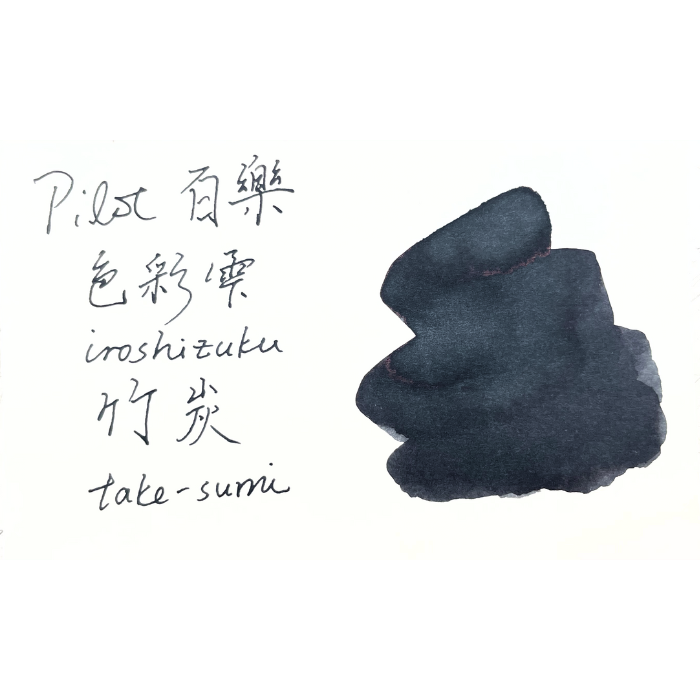 Pilot 百樂
色彩雫
iroshizuku
竹炭
take-sumi